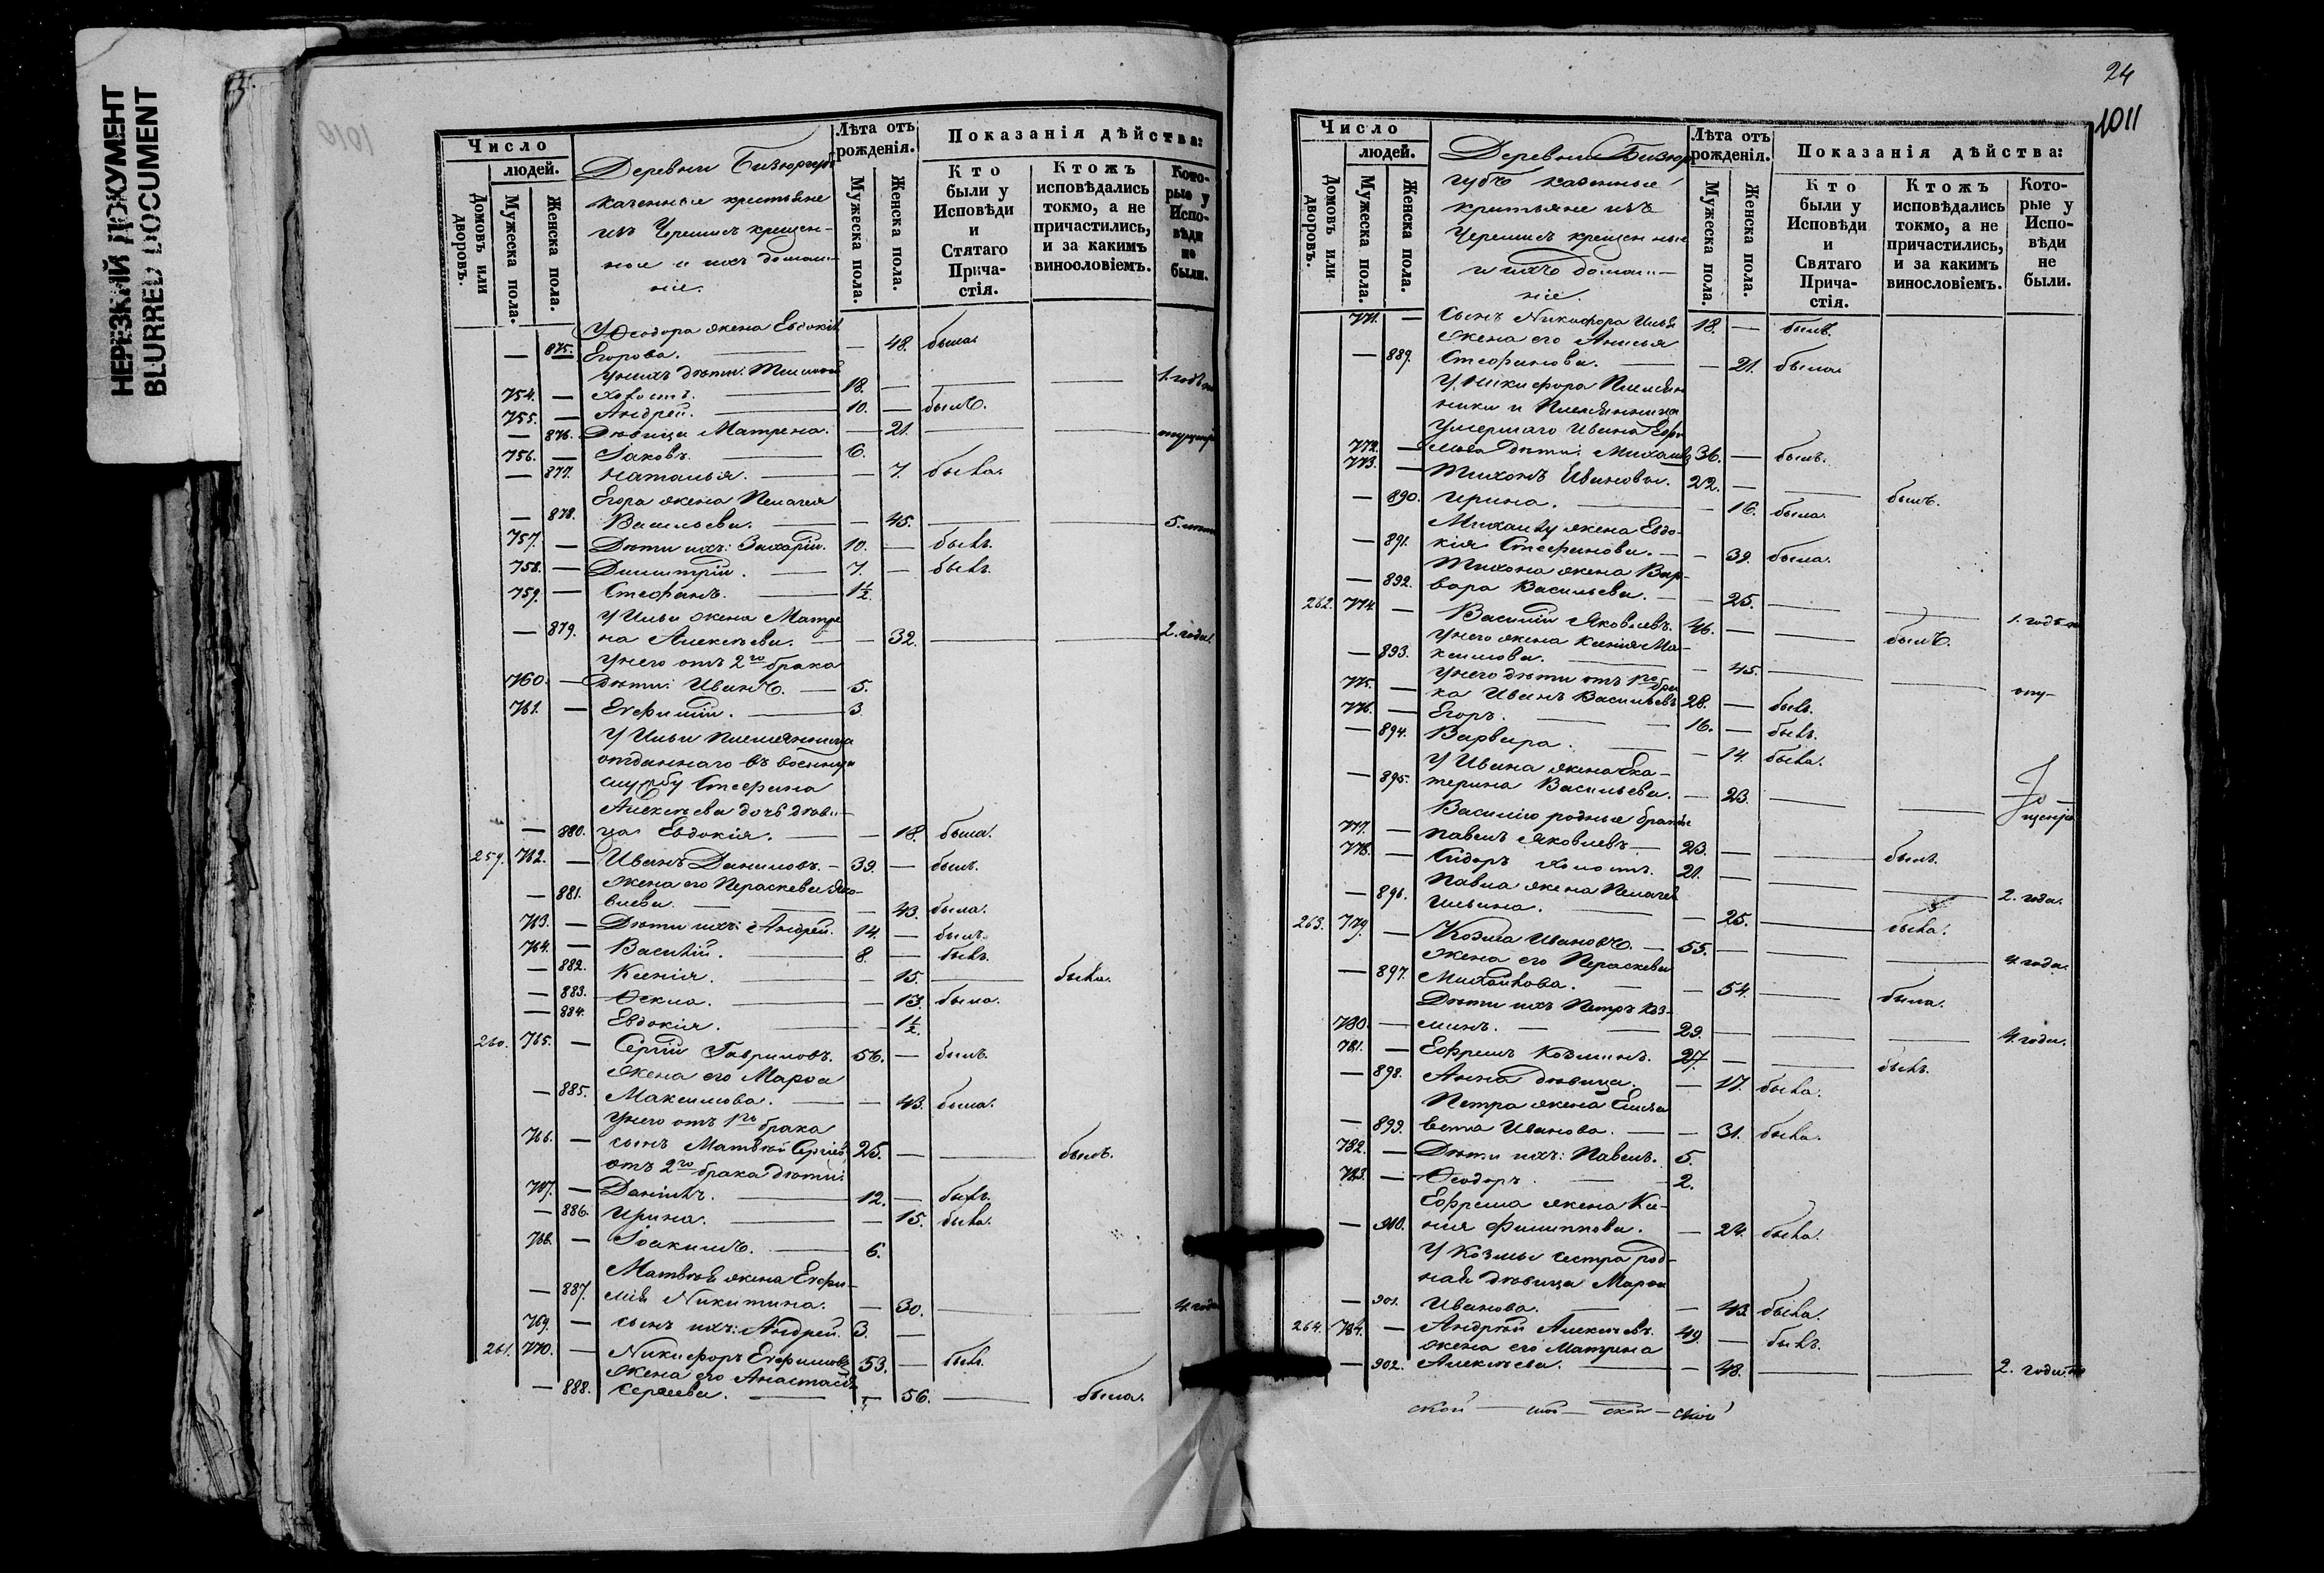 НЕРЕЗКИЙ ДОКУМЕНТ
BLURRED DOCUMENT
1010
Число
людей.
Домовъ или дворовъ.
Мужеска пола.
Женска пола.
Деревни
казенные крестьяне
изъ Черемисъ крещен-
ные и ихъ домаш-
ніе.
Лѣта отъ рожденія.
Мужеска пола.
Женска пола.
Показанія дѣйства:
Кто были у Исповѣди и Стятаго Прича-стія.
Ктожъ исповѣдались токмо, а не причастились, и за какимъ винословіемъ.
Кото-рые у Испо-вѣди не были.
У Ѳеодора жена Евдокія
— 875. Егорова. — 48. была.
У нихъ дѣти: Тимоѳей
754. — холостъ. 18. — 1. годъ
755. — Андрей. 10. — былъ.
— 876. Дѣвица Матрена. — 21.
756. — Іаковъ. 6.
— 877. Наталья. — 7. была.
Егора жена Пелагея
— 878. Васильева. — 45. 5.
757. — Дѣти ихъ: Захарій. 10. — былъ.
758. — Димитрій. 7. — былъ.
759. — Стефанъ. 1½.
У Ильи жена Матре
— 879. на Алексѣева. — 32. 2. года.
У него отъ 2го брака
760. — дѣти: Иванъ. 5.
761. — Евфимій. 3.
У Ильи племянника
отданнаго въ военную
службу Стефана
Алексѣева дочь дѣви-
— 880. ца Евдокія. — 18. была.
259. 762. — Иванъ Даниловъ. 39. — былъ.
жена его Параскева Яко-
— 881. влева. — 43. была.
763. — Дѣти ихъ: Андрей. 14. — былъ.
764. — Василій. 8. — былъ.
— 882. Ксенія. — 15. — была.
— 883. Ѳекла. — 13. была.
— 884. Евдокія. — 1½.
260. 765. — Сергій Гавриловъ. 56. — былъ.
жена его Марѳа
— 885. Максимова. — 43. была.
У него отъ 1го брака
766. — сынъ Матвѣй Сергіевъ 25. — — былъ.
отъ 2го брака дѣти:
767. — Даніилъ. 12. — былъ.
— 886. Ирина. — 15. была.
768. — Іоакимъ. 6.
Матвѣя жена Евфи-
— 887. мія Никитина. — 30. — — 4. года
769. — сынъ ихъ: Андрей. 3. —
261. 770. — Никифоръ Евфимовъ 53. — былъ.
жена его Анастасія
— 888. Сергеева. — 56. — была.
24
1011
Число
людей.
Домовъ или дворовъ.
Мужеска пола.
Женска пола.
Деревни
казенные
крестьяне изъ
Черемисъ крещенные
и ихъ домаш-
ніе.
Лѣта отъ рожденія.
Мужеска пола.
Женска пола.
Показанія дѣйства:
Кто были у Исповѣди и Святаго Прича-стія.
Ктожъ исповѣдались токмо, а не причастились, и за какимъ винословіемъ.
Кото-рые у Испо-вѣди не были.
771. — Сынъ Никифора Илья 18. — былъ.
жена его Анисья
— 889. Стефанова. — 21. была.
У Никифора племян
ники и племянница
умершаго Ивана Ефи
772. — мова дѣти: Михаилъ 36. — былъ.
773. — Тихонъ Ивановы. 22. — — былъ.
— 890. Ирина. — 16. была.
Михаилу жена Евдо-
— 891. кія Стефанова. — 39. была.
Тихона жена Вар-
— 892. вара Васильева. — 25. — — 1. годъ
262. 774. — Василій Яковлевъ. 46. — — былъ.
У него жена Ксенія Ма-
— 893. ксимова. — 45.
У него дѣти отъ 1го бра
775. — ка Иванъ Васильевъ 28. — былъ.
776. — Егоръ. 16. — былъ.
— 894. Варвара. — 14. была.
У Ивана жена Ека-
— 895. терина Васильева. — 23.
Василію родные братья
777. — Павелъ Яковлевъ. 23. — — былъ.
778. — Сидоръ холостъ. 21. — — — 2. года.
Павла жена Пелагея
— 896. Ильина. — 25. — была.
263. 779. — Козма Ивановъ. 55. — — — 4. года.
жена его Параскева
— 897. Михайлова. — 54. — была.
Дѣти ихъ Петръ Коз-
780. — минъ. 29. — — — 4. года.
781. — Ефремъ Козминъ. 27. — — былъ.
— 898. Анна дѣвица. — 17. была.
Петра жена Елиса
— 899. вета Иванова. — 31. была.
782. — Дѣти ихъ: Павелъ. 5.
783. — Ѳеодоръ. 2.
Ефрема жена Ксе-
— 900. нія Филиппова. — 24. была.
У Козмы сестра род-
ная дѣвица Марѳа
— 901. Иванова. — 43. была.
264. 784. — Андрей Алексѣевъ. 49. — былъ.
жена его Матрена
— 902. Алексѣева. — 48. — — 2. года.